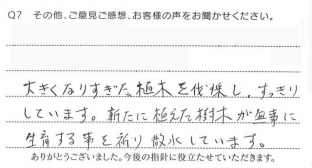 Q7 その他、ご意見ご感想、お客様の声をお聞かせください。
大きくなりすぎた植木を伐採し、すっきり
しています。新たに植えた樹木が無事に
生育する事を祈り散水しています。
ありがとうございました。今後の指針に役立たせていただきます。